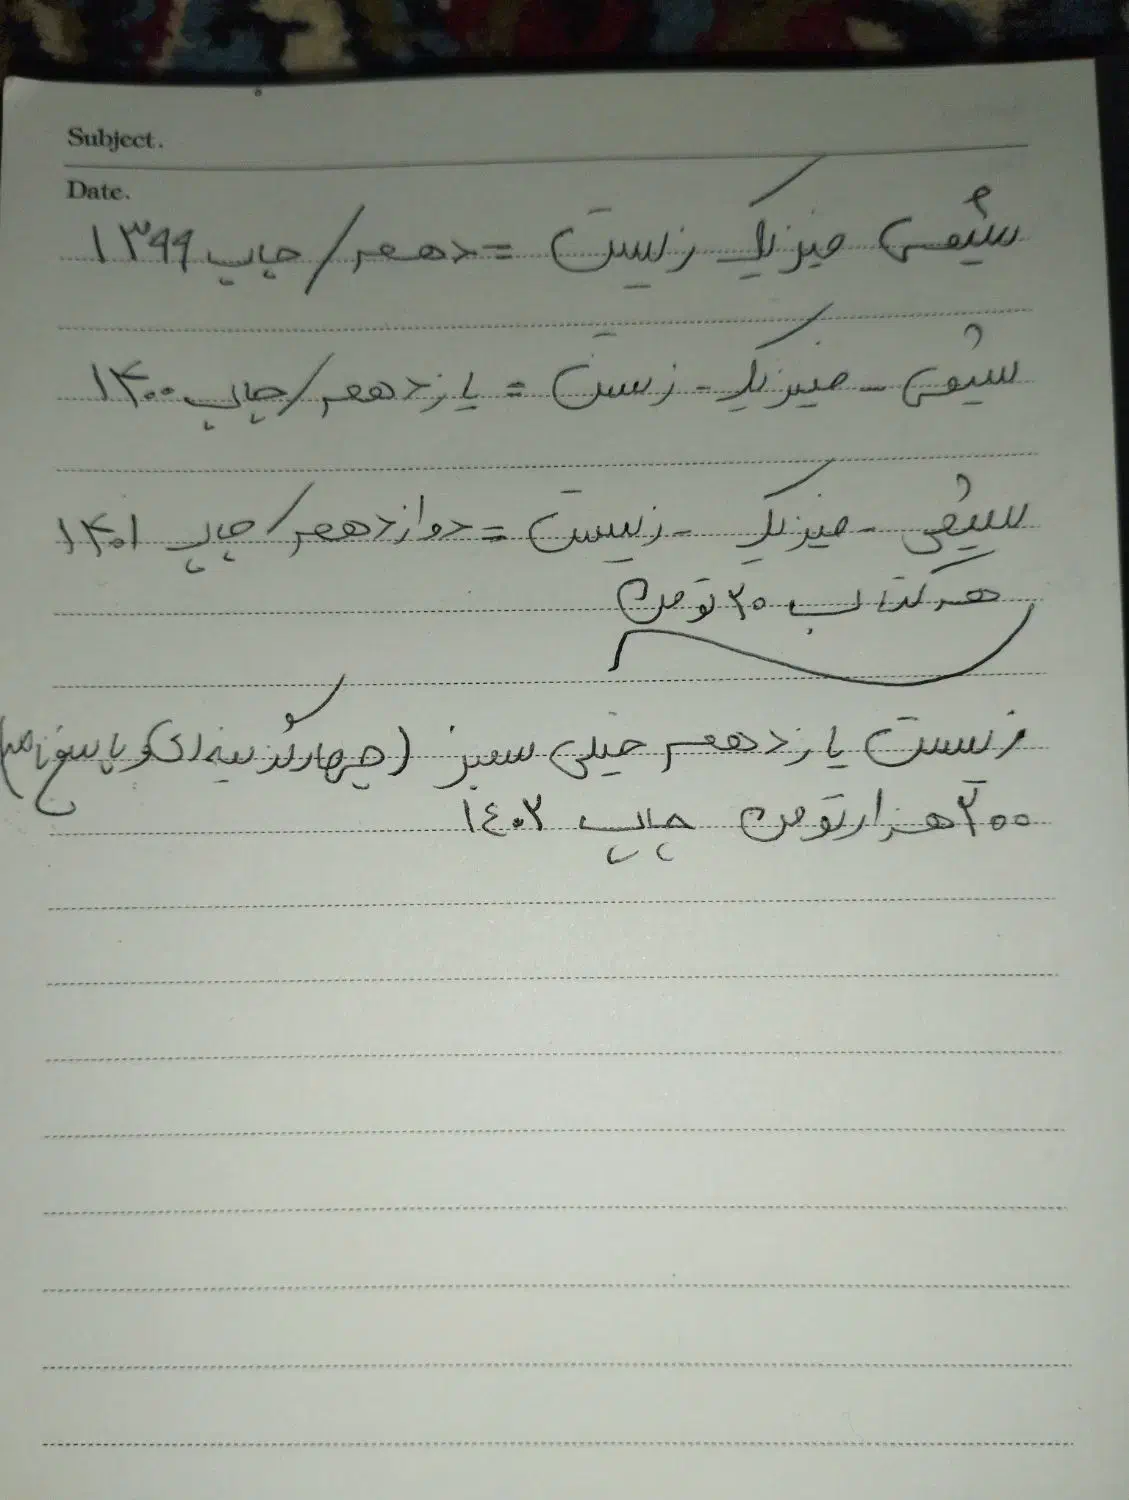 Subject.
Date.
شیمی فیزیک زیست = دهم / چاپ ۱۳۹۹
شیمی - فیزیک - زیست = یازدهم / چاپ ۱۴۰۰
شیمی - فیزیک - زیست = دوازدهم / چاپ ۱۴۰۱
هر کتاب ۲۰ تومن
زیست یازدهم خیلی سبز (چهارگزینه‌ای و پاسخنامه)
۲۰۰ هزار تومن چاپ ۱۴۰۲